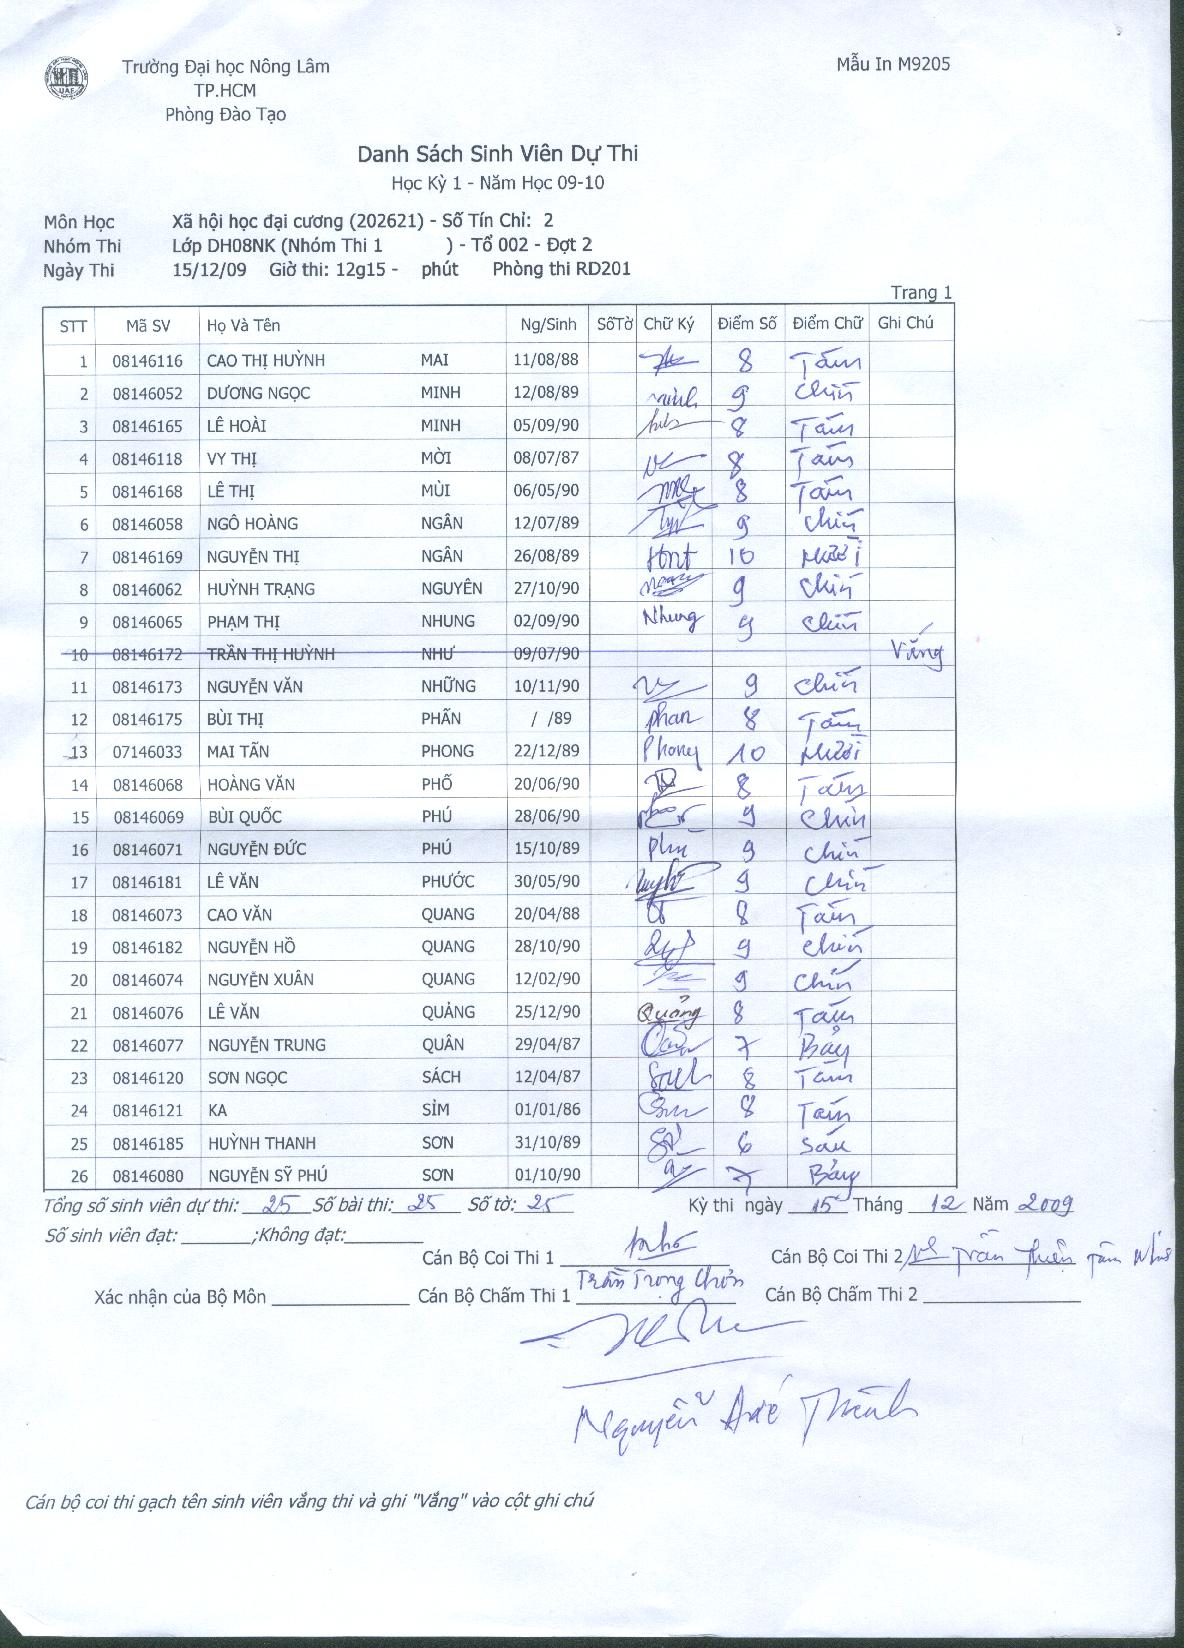 Trường Đại học Nông Lâm
TP.HCM
Phòng Đào Tạo
Mẫu In M9205
UAF
Danh Sách Sinh Viên Dự Thi
Học Kỳ 1 - Năm Học 09-10
Môn Học Xã hội học đại cương (202621) - Số Tín Chỉ: 2
Nhóm Thi Lớp DH08NK (Nhóm Thi 1 ) - Tổ 002 - Đợt 2
Ngày Thi 15/12/09 Giờ thi: 12g15 - phút Phòng thi RD201
Trang 1
STT Mã SV Họ Và Tên Ng/Sinh SốTờ Chữ Ký Điểm Số Điểm Chữ Ghi Chú
1 08146116 CAO THỊ HUỲNH MAI 11/08/88 8 Tám
2 08146052 DƯƠNG NGỌC MINH 12/08/89 minh 9 Chín
3 08146165 LÊ HOÀI MINH 05/09/90 8 Tám
4 08146118 VY THỊ MỜI 08/07/87 8 Tám
5 08146168 LÊ THỊ MÙI 06/05/90 8 Tám
6 08146058 NGÔ HOÀNG NGÂN 12/07/89 9 Chín
7 08146169 NGUYỄN THỊ NGÂN 26/08/89 10 Mười
8 08146062 HUỲNH TRẠNG NGUYÊN 27/10/90 9 Chín
9 08146065 PHẠM THỊ NHUNG 02/09/90 Nhung 9 Chín
10 08146172 TRẦN THỊ HUỲNH NHƯ 09/07/90 Vắng
11 08146173 NGUYỄN VĂN NHỮNG 10/11/90 9 Chín
12 08146175 BÙI THỊ PHẤN / /89 phan 8 Tám
13 07146033 MAI TẤN PHONG 22/12/89 Phong 10 Mười
14 08146068 HOÀNG VĂN PHỐ 20/06/90 8 Tám
15 08146069 BÙI QUỐC PHÚ 28/06/90 9 Chín
16 08146071 NGUYỄN ĐỨC PHÚ 15/10/89 phú 9 Chín
17 08146181 LÊ VĂN PHƯỚC 30/05/90 9 Chín
18 08146073 CAO VĂN QUANG 20/04/88 8 Tám
19 08146182 NGUYỄN HỒ QUANG 28/10/90 9 Chín
20 08146074 NGUYỄN XUÂN QUANG 12/02/90 9 Chín
21 08146076 LÊ VĂN QUẢNG 25/12/90 Quảng 8 Tám
22 08146077 NGUYỄN TRUNG QUÂN 29/04/87 7 Bảy
23 08146120 SƠN NGỌC SÁCH 12/04/87 8 Tám
24 08146121 KA SÌM 01/01/86 8 Tám
25 08146185 HUỲNH THANH SƠN 31/10/89 6 Sáu
26 08146080 NGUYỄN SỸ PHÚ SƠN 01/10/90 7 Bảy
Tổng số sinh viên dự thi: 25 Số bài thi: 25 Số tờ: 25 Kỳ thi ngày 15 Tháng 12 Năm 2009
Số sinh viên đạt: ;Không đạt:
Cán Bộ Coi Thi 1 Cán Bộ Coi Thi 2 Trần Thiên Tâm
Trần Trọng
Xác nhận của Bộ Môn Cán Bộ Chấm Thi 1 Cán Bộ Chấm Thi 2
Nguyễn Thành
Cán bộ coi thi gạch tên sinh viên vắng thi và ghi "Vắng" vào cột ghi chú